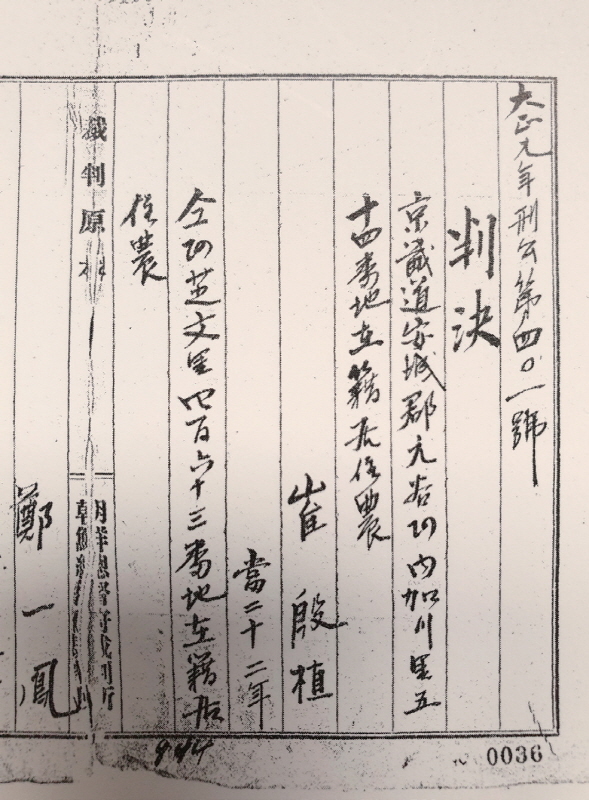 大正九年刑公第四〇一號
判決
京畿道安城郡元谷面内加川里五
十四番地在籍居住農
崔殷植
當二十二年
仝面芝文里四百六十三番地在籍居
住農
裁判原本
朝鮮總督府裁判所
鄭一鳳
944
0036